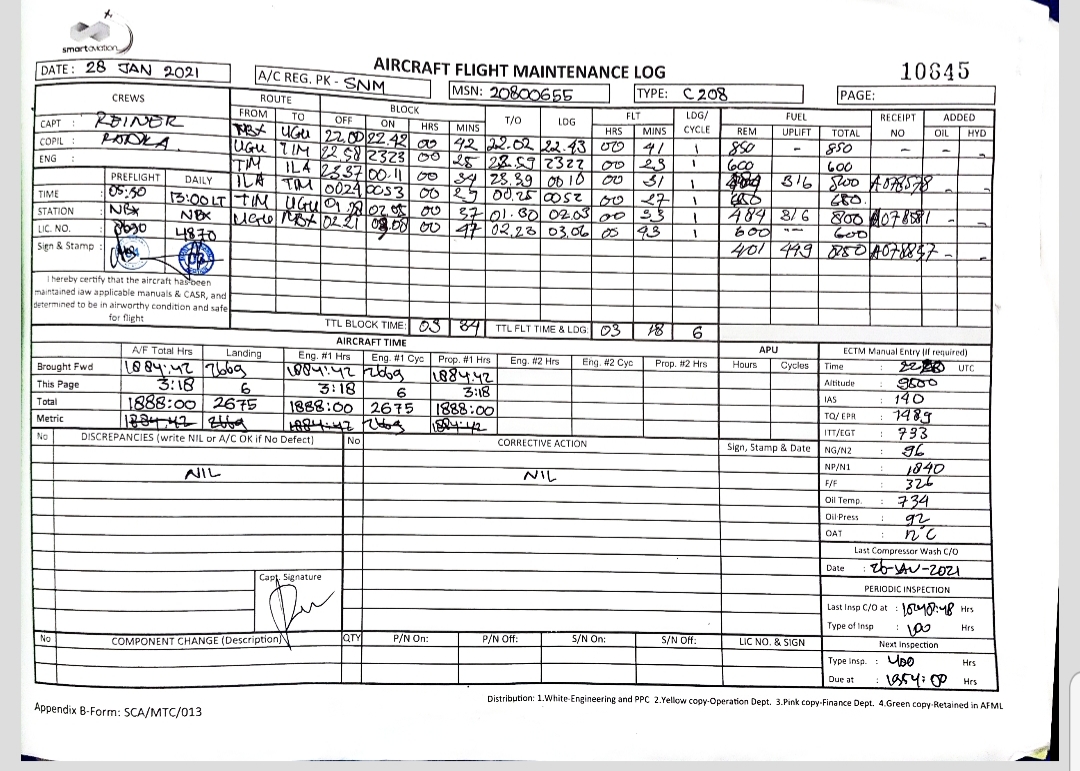 smartaviation
AIRCRAFT FLIGHT MAINTENANCE LOG
10645
DATE : 28 JAN 2021
A/C REG. PK - SNM
MSN: 20800655
TYPE: C 208
PAGE:
CREWS ROUTE BLOCK T/O LDG FLT LDG/ CYCLE FUEL RECEIPT NO ADDED
FROM TO OFF ON HRS MINS HRS MINS REM UPLIFT TOTAL OIL HYD
CAPT : REINER
COPIL :
ENG :
NBX UGU 22.00 22.42 00 42 22.02 22.43 00 41 1 850 - 850 - - -
UGU TIM 22.58 2323 00 25 22.59 2322 00 23 1 600 600
TIM ILA 23.37 00.11 00 34 23.39 0010 00 31 1 316 800 A078578
ILA TIM 0024 0053 00 29 00.25 0052 00 27 1 680 680.
TIM UGU 02.05 00 37 01.30 02.03 00 33 1 484 316 800 A078581 - -
UGU NBX 02.21 00 47 02.23 03.06 43 1 600 -- 600
401 449 850 - -
PREFLIGHT DAILY
TIME : 05:30 13:00LT
STATION : NBX NBX
LIC. NO. : 4870
Sign & Stamp :
I hereby certify that the aircraft has been
maintained iaw applicable manuals & CASR, and
determined to be in airworthy condition and safe
for flight
TTL BLOCK TIME: 03 34 TTL FLT TIME & LDG: 03 18 6
AIRCRAFT TIME
A/F Total Hrs Landing Eng. #1 Hrs Eng. #1 Cyc Prop. #1 Hrs Eng. #2 Hrs Eng. #2 Cyc Prop. #2 Hrs APU Hours Cycles
Brought Fwd 1884:42 2669 1884:42 2669 1884:42
This Page 3:18 6 3:18 6 3:18
Total 1888:00 2675 1888:00 2675 1888:00
Metric 1884:42 2669 1884:42 2669 1884:42
ECTM Manual Entry (If required)
Time : UTC
Altitude : 9500
IAS : 140
TQ/ EPR : 1489
ITT/EGT : 733
NG/N2 : 96
NP/N1 : 1840
F/F : 326
Oil Temp. : 734
Oil Press : 92
OAT :
Last Compressor Wash C/O
Date : 26-JAN-2021
PERIODIC INSPECTION
Last Insp C/O at : Hrs
Type of Insp : 100 Hrs
Next Inspection
Type Insp. : 400 Hrs
Due at : 1954:00 Hrs
No DISCREPANCIES (write NIL or A/C OK if No Defect) No CORRECTIVE ACTION Sign, Stamp & Date
NIL NIL
Capt. Signature
No COMPONENT CHANGE (Description) QTY P/N On: P/N Off: S/N On: S/N Off: LIC NO. & SIGN
Appendix B-Form: SCA/MTC/013
Distribution: 1.White-Engineering and PPC 2.Yellow copy-Operation Dept. 3.Pink copy-Finance Dept. 4.Green copy-Retained in AFML